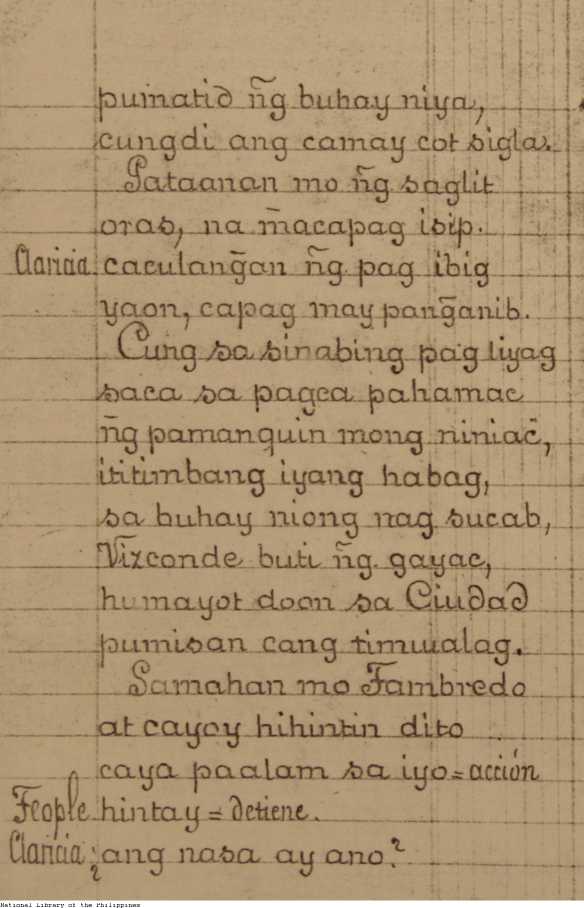 pumatid ñg buhay niya,
cungdi ang camay cot sigla.
Pataanan mo ñg saglit
oras, na macapag isip.
Claricia. caculang̃an ñg pag ibig
yaon, capag may pang̃anib.
Cung sa sinabing pag liyag
saca sa pagca pahamac
ñg pamanquin mong niniac̃,
ititimbang iyang habag,
sa buhay niong nag sucab,
Vizconde buti ñg gayac,
humayot doon sa Ciudad
pumisan cang timualag.
Samahan mo Fambredo
at cayoy hihintin dito
caya paalam sa iyo = acción
Feople hintay = detiene.
Claricia ¿ang nasa ay ano?
National Library of the Philippines